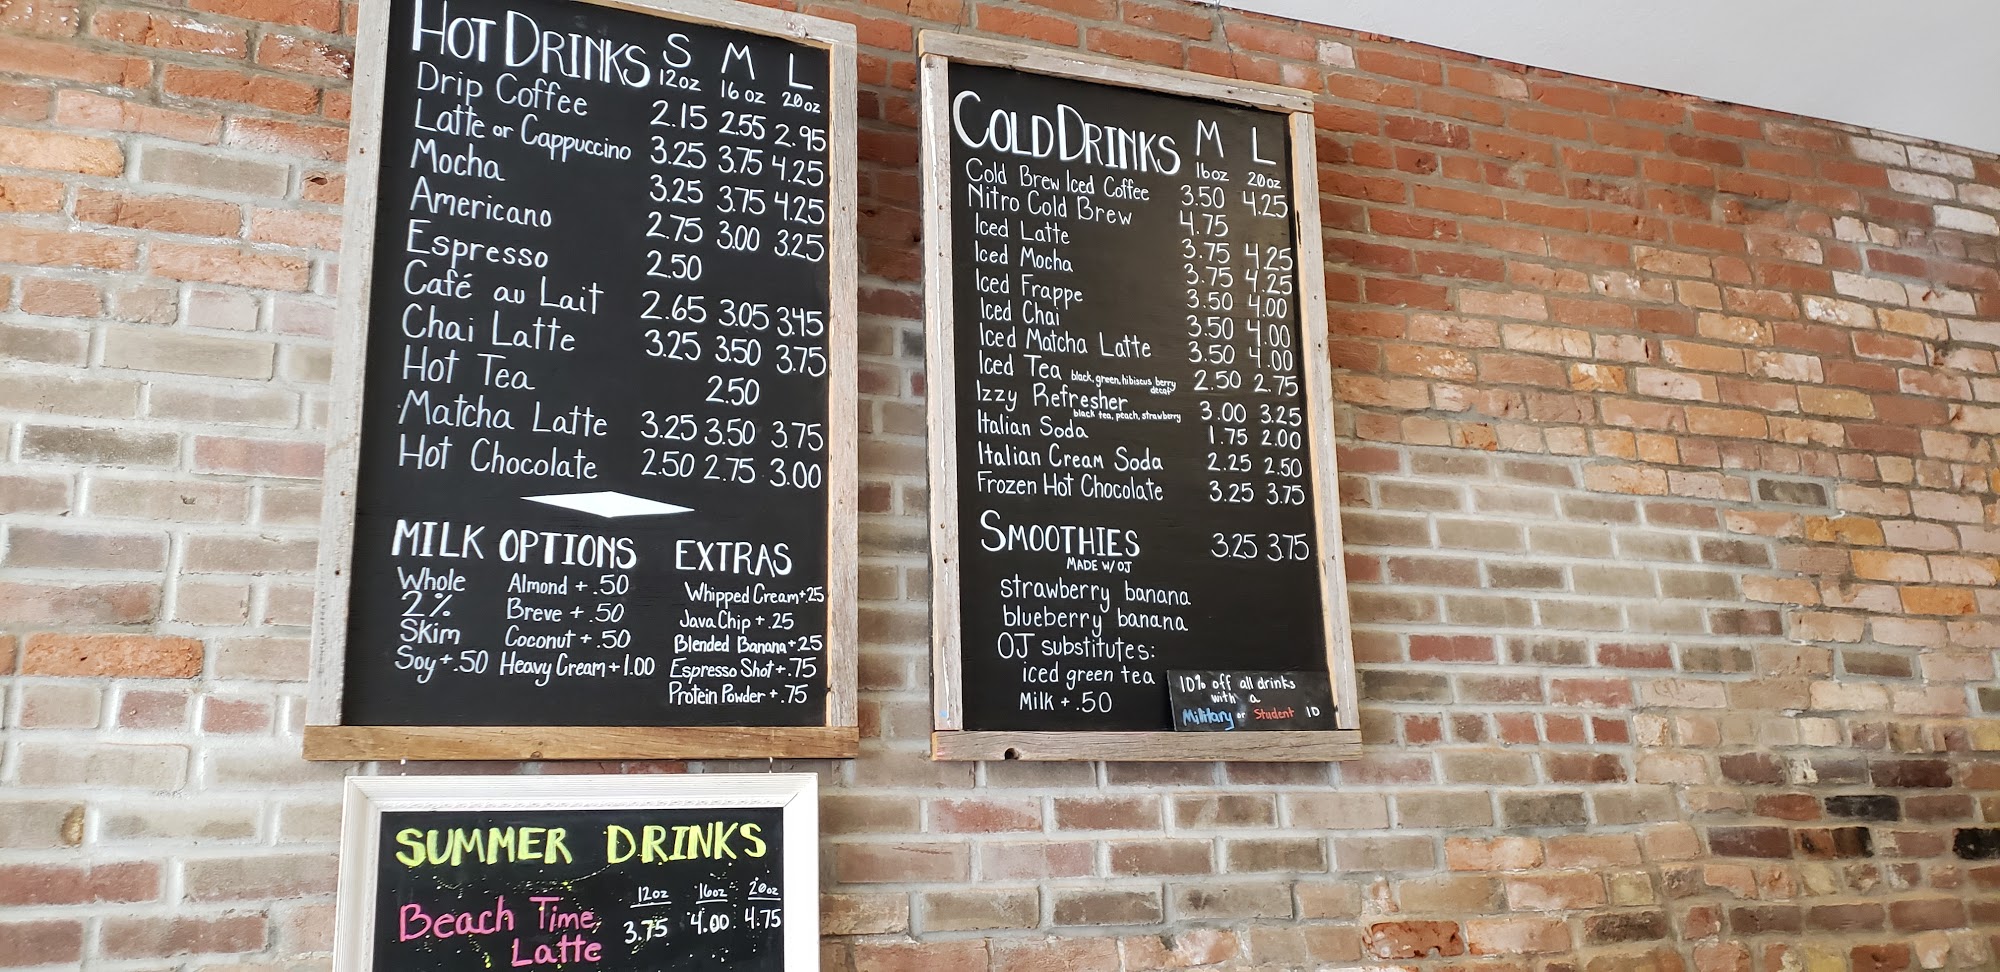 HOT DRINKS S M L
12oz 16oz 20oz
Drip Coffee 2.15 2.55 2.95
Latte or Cappuccino 3.25 3.75 4.25
Mocha 3.25 3.75 4.25
Americano 2.75 3.00 3.25
Espresso 2.50
Café au Lait 2.65 3.05 3.45
Chai Latte 3.25 3.50 3.75
Hot Tea 2.50
Matcha Latte 3.25 3.50 3.75
Hot Chocolate 2.50 2.75 3.00
MILK OPTIONS
Whole
2%
Skim
Soy +.50
Almond +.50
Breve +.50
Coconut +.50
Heavy Cream +1.00
EXTRAS
Whipped Cream +.25
Java Chip +.25
Blended Banana +.25
Espresso Shot +.75
Protein Powder +.75
COLD DRINKS M L
16oz 20oz
Cold Brew Iced Coffee 3.50 4.25
Nitro Cold Brew 4.75
Iced Latte 3.75 4.25
Iced Mocha 3.75 4.25
Iced Frappe 3.50 4.00
Iced Chai 3.50 4.00
Iced Matcha Latte 3.50 4.00
Iced Tea black, green, hibiscus berry 2.50 2.75
decaf
Izzy Refresher 3.00 3.25
black tea, peach, strawberry
Italian Soda 1.75 2.00
Italian Cream Soda 2.25 2.50
Frozen Hot Chocolate 3.25 3.75
SMOOTHIES 3.25 3.75
MADE W/OJ
strawberry banana
blueberry banana
OJ substitutes:
iced green tea
Milk +.50
10% off all drinks
with a
Military or Student ID
SUMMER DRINKS
12oz 16oz 20oz
Beach Time 3.75 4.00 4.75
Latte